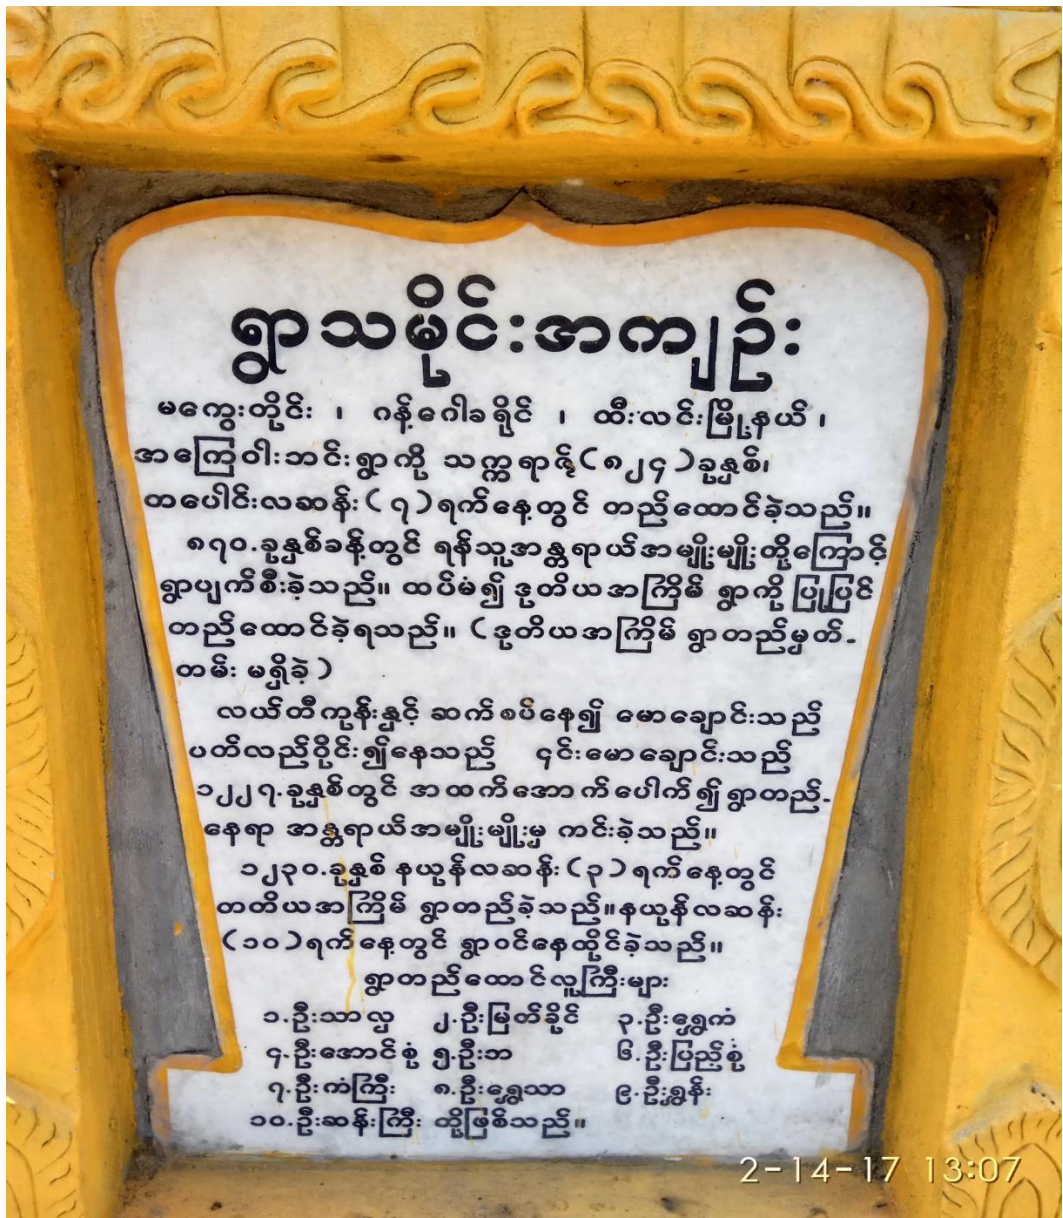 ရွာသမိုင်းအကျဉ်း
မကွေးတိုင်း ၊ ဂန့်ဂေါခရိုင် ၊ ထီးလင်းမြို့နယ် ၊
အကြေဝါးဘင်းရွာကို သက္ကရာဇ်(၈၂၄)ခုနှစ်၊
တပေါင်းလဆန်း(၇)ရက်နေ့တွင် တည်ထောင်ခဲ့သည်။
၈၇၀.ခုနှစ်ခန့်တွင် ရန်သူအန္တရာယ်အမျိုးမျိုးတို့ကြောင့်
ရွာပျက်စီးခဲ့သည်။ ထပ်မံ၍ ဒုတိယအကြိမ် ရွာကို ပြုပြင်
တည်ထောင်ခဲ့ရသည်။ (ဒုတိယအကြိမ် ရွာတည်မှတ်-
တမ်း မရှိခဲ့)
လယ်တီကုန်းနှင့် ဆက်စပ်နေ၍ မောချောင်းသည်
ပတ်လည်ဝိုင်း၍နေသည် ၎င်းမောချောင်းသည်
၁၂၂၇.ခုနှစ်တွင် အထက်အောက်ပေါက်၍ရွာတည်-
နေရာ အန္တရာယ်အမျိုးမျိုးမှ ကင်းခဲ့သည်။
၁၂၃၀.ခုနှစ် နယုန်လဆန်း(၃)ရက်နေ့တွင်
တတိယအကြိမ် ရွာတည်ခဲ့သည်။နယုန်လဆန်း
(၁၀)ရက်နေ့တွင် ရွာဝင်နေထိုင်ခဲ့သည်။
ရွာတည်ထောင်လူကြီးများ
၁.ဦးသာလှ ၂.ဦးမြတ်ခိုင် ၃.ဦးရွှေကံ
၄.ဦးအောင်စုံ ၅.ဦးဘ ၆.ဦးပြည့်စုံ
၇.ဦးကံကြီး ၈.ဦးရွှေသာ ၉.ဦးရွှန်း
၁၀.ဦးဆန်းကြီး တို့ဖြစ်သည်။
2-14-17 13:07